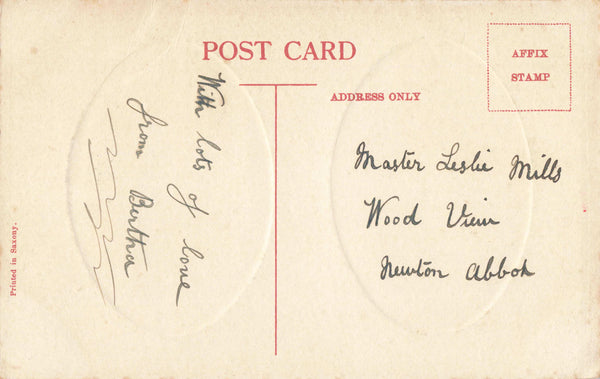 POST CARD
AFFIX
STAMP
ADDRESS ONLY
With lots of love
from Bertha
Master Leslie Mills
Wood View
Newton Abbot
Printed in Saxony.